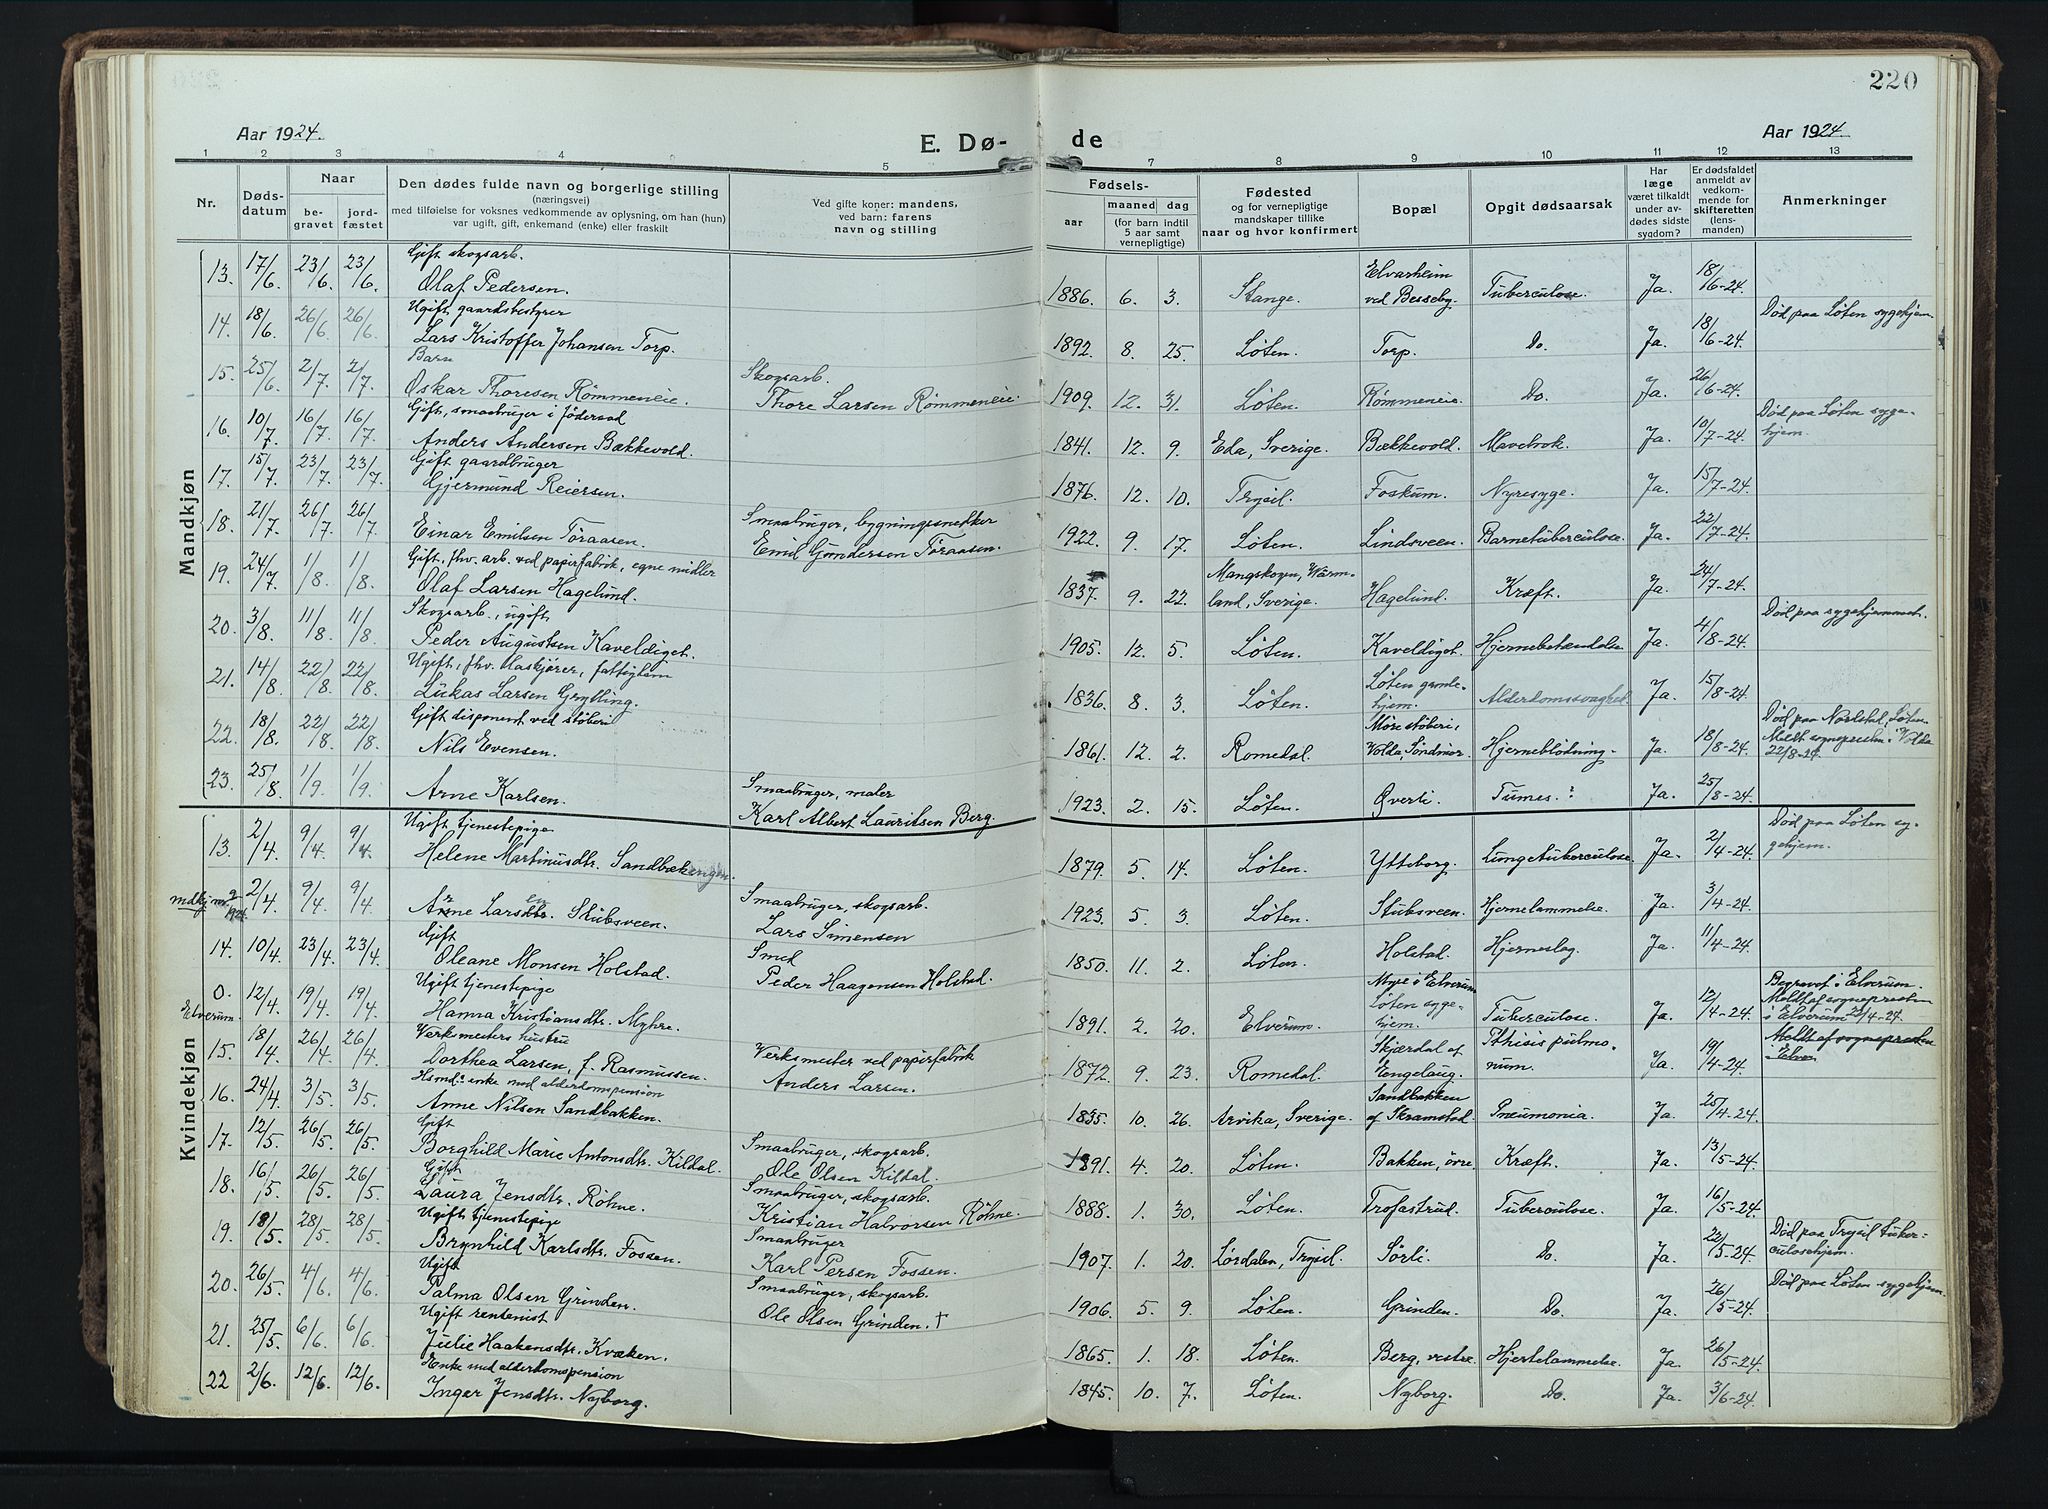 220
Aar 1924.
E. Døde
Aar 1924.
1 2 3 4 5 7 8 9 10 11 12 13
Nr.
Døds-
datum
Naar
be-
gravet
jord-
fæstet
Den dødes fulde navn og borgerlige stilling
(næringsvei)
med tilføielse for voksnes vedkommende av oplysning, om han (hun)
var ugift, gift, enkemand (enke) eller fraskilt
Ved gifte koner: mandens,
ved barn: farens
navn og stilling
Fødsels-
aar
maaned dag
(for barn indtil
5 aar samt
vernepligtige)
Fødested
og for vernepligtige
mandskaper tillike
naar og hvor konfirmert
Bopæl
Opgit dødsaarsak
Har
læge
været tilkaldt
under av-
dødes sidste
sygdom?
Er dødsfaldet
anmeldt av
vedkom-
mende for
skifteretten
(lens-
manden)
Anmerkninger
Mandkjøn
Gift skogsarb. Elvarheim 18/6-24.
13. 17/6 23/6 23/6 Olaf Pedersen. 1886. 6. 3. Stange. ved Besseby. Tuberculose. Ja.
Ugift gaardsbestyrer Død paa Løten sygehjem.
14. 18/6 26/6 26/6 Lars Kristoffer Johansen Torp. 1892. 8. 25. Løten. Torp. Do. Ja. 18/6-24.
Barn Skogsarb.
15. 25/6 2/7 2/7 Oskar Thoresen Rømmeneie. Thore Larsen Rømmeneie. 1909. 12. 31. Løten. Rømmeneie. Do. Ja. 26/6-24.
Gift, smaabruger i Død paa Løten syge-
16. 10/7 16/7 16/7 Anders Andersen Bækkevold. 1841. 12. 9. Eda, Sverige. Bækkevold. Mavebrok. Ja. 10/7-24. hjem.
Gift gaardbruger
17. 15/7 23/7 23/7 Gjermund Reiersen. 1876. 12. 10. Trysil. Foskum. Nyresyge. Ja. 15/7-24.
Smaabruger, bygningssnekker
18. 21/7 26/7 26/7 Einar Emilsen Tøraasen. Emil Gundersen Tøraasen. 1922. 9. 17. Løten. Lindsveen. Barnetuberculose. Ja. 22/7-24.
Gift, fhv. arb. ved papirfabrik, egne midler Mangskogen, Wärm-
19. 24/7 1/8 1/8 Olaf Larsen Hagelund. 1837. 9. 22. land, Sverige. Hagelund. Kræft. Ja. 24/7-24.
Skogsarb., ugift Død paa sygehjemmet.
20. 3/8 11/8 11/8 Peder Augustsen Kaveldiget. 1905. 12. 5. Løten. Kaveldiget. Hjernebetændelse. Ja. 4/8-24.
Ugift, fhv. flaskjører, fattiglem Løten gamle-
21. 14/8 22/8 22/8 Lukas Larsen Grylling. 1836. 8. 3. Løten. hjem. Alderdomssvaghed. Ja. 15/8-24.
Gift disponent ved støberi Møre støberi, Død paa Norlstad, Løten.
22. 18/8 22/8 22/8 Nils Evensen. 1861. 12. 2. Romedal. Volda, Søndmør. Hjerneblødning. Ja. 18/8-24. Meldt sognepresten i Volda
22/8-24.
Smaabruger, maler
23. 25/8 1/9 1/9 Arne Karlsen. Karl Albert Lauritsen Berg. 1923. 2. 15. Løten. Øverli. Tumes.? Ja. 25/8-24.
Kvindekjøn
Ugift tjenestepige Død paa Løten sy-
13. 2/4 9/4 9/4 Helene Martinusdtr. Sandbækengen. 1879. 5. 14. Løten. Ytteborg. Lungetuberculose. Ja. 2/4-24. gehjem.
mdkj. nr. 9 1924. Smaabruger, skogsarb.
2/4 9/4 9/4 Arne Larsen Stubsveen. Lars Simensen 1923. 5. 3. Løten. Stubsveen. Hjernelammelse. Ja. 3/4-24.
Gift Smed
14. 10/4 23/4 23/4 Oleane Monsen Holstad. Peder Haagensen Holstad. 1850. 11. 2. Løten. Holstad. Hjerneslag. Ja. 11/4-24.
Ugift tjenestepige Myre i Elverum Begravet i Elverum.
0. Elverum. 12/4 19/4 19/4 Hanna Kristiansdtr. Myhre. 1891. 2. 20. Elverum. Løten syge-
hjem. Tuberculose. Ja. 12/4-24. Meldt af sognepresten
i Elverum 23/4-24.
Verksmesters hustru Verksmester ved papirfabrik Skjærdal af Pthisis pulmo- Meldt af sognepresten
15. 18/4 26/4 26/4 Dorthea Larsen, f. Rasmussen. Anders Larsen. 1872. 9. 23. Romedal. Engelaug. num. Ja. 19/4-24. Elver
Hsmd.s enke med alderdomspension Sandbakken
16. 24/4 3/5 3/5. Anne Nilsen Sandbakken. 1835. 10. 26. Arvika, Sverige. af Skramstad. Pneumonia. Ja. 25/4-24.
Gift Smaabruger, skogsarb.
17. 12/5 26/5 26/5 Borghild Marie Antonsdtr. Kildal. Ole Olsen Kildal. 1891. 4. 20. Løten. Bakken, øvre. Kræft. Ja. 13/5-24.
Gift Smaabruger, skogsarb.
18. 16/5 26/5 26/5 Laura Jensdtr. Røhne. Kristian Halvorsen Røhne. 1888. 1. 30. Løten. Trofastrud. Tuberculose. Ja. 16/5-24.
Ugift tjenestepige Smaabruger Død paa Trysil tuber-
19. 18/5 28/5 28/5 Brynhild Karlsdtr. Fossen. Karl Persen Fossen. 1907. 1. 20. Lørdalen, Trysil. Sørli. Do. Ja. 22/5-24. culosehjem.
Ugift Smaabruger, skogsarb. Død paa Løten sygehjem.
20. 26/5 4/6 4/6 Palma Olsen Grinden. Ole Olsen Grinden. † 1906. 5. 9. Løten. Grinden. Do. Ja. 26/5-24.
Ugift rentenist
21. 25/5 6/6 6/6 Julie Haakensdtr. Kvæken. 1865. 1. 18. Løten. Berg, vestre. Hjertelammelse. Ja. 26/5-24.
Enke med alderdomspension
22 2/6. 12/6. 12/6. Inger Jensdtr. Nyborg. 1845. 10. 7. Løten. Nyborg. Do. Ja. 3/6-24.